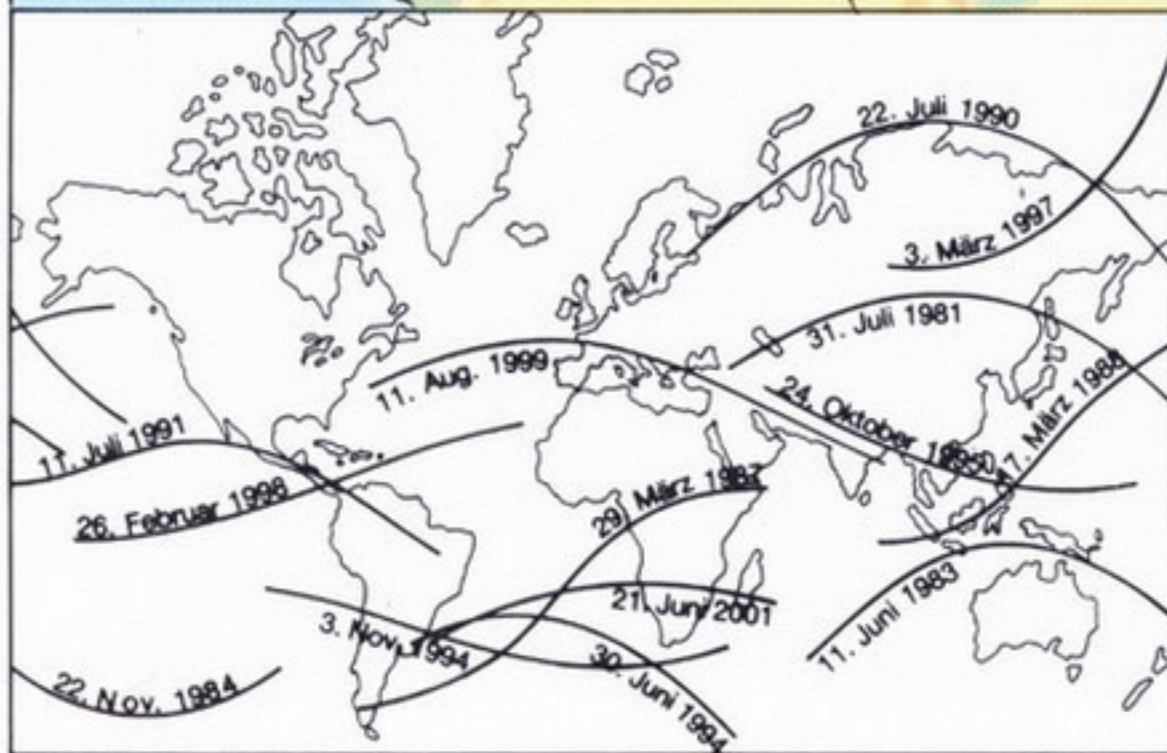 22. Juli 1990
3. März 1997
31. Juli 1981
11. Aug. 1999
24. Oktober
17. März 1988
11. Juli 1991
26. Februar 1998
29. März 1987
11. Juni 1983
21. Juni 2001
3. Nov. 1994
30. Juni 1994
22. Nov. 1984